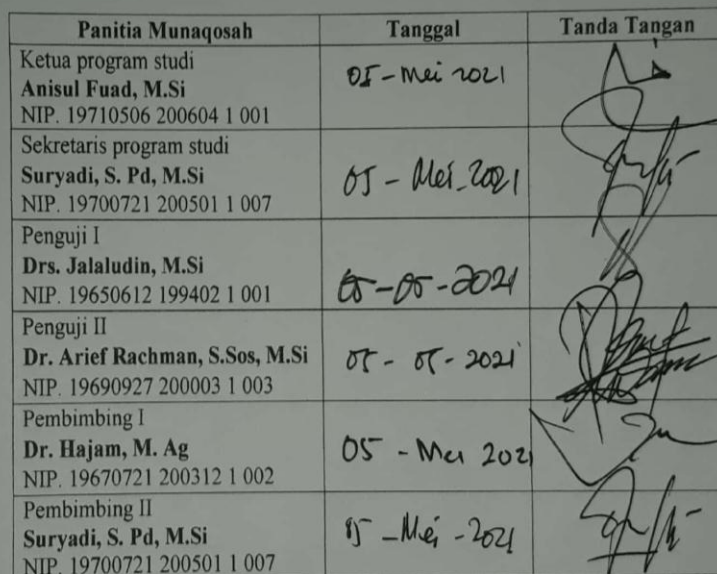 Panitia Munaqosah Tanggal Tanda Tangan
Ketua program studi
Anisul Fuad, M.Si
NIP. 19710506 200604 1 001
05 - Mei 2021
Sekretaris program studi
Suryadi, S. Pd, M.Si
NIP. 19700721 200501 1 007
05 - Mei - 2021
Penguji I
Drs. Jalaludin, M.Si
NIP. 19650612 199402 1 001
05 - 05 - 2021
Penguji II
Dr. Arief Rachman, S.Sos, M.Si
NIP. 19690927 200003 1 003
05 - 05 - 2021
Pembimbing I
Dr. Hajam, M. Ag
NIP. 19670721 200312 1 002
05 - Mei 2021
Pembimbing II
Suryadi, S. Pd, M.Si
NIP. 19700721 200501 1 007
05 - Mei - 2021